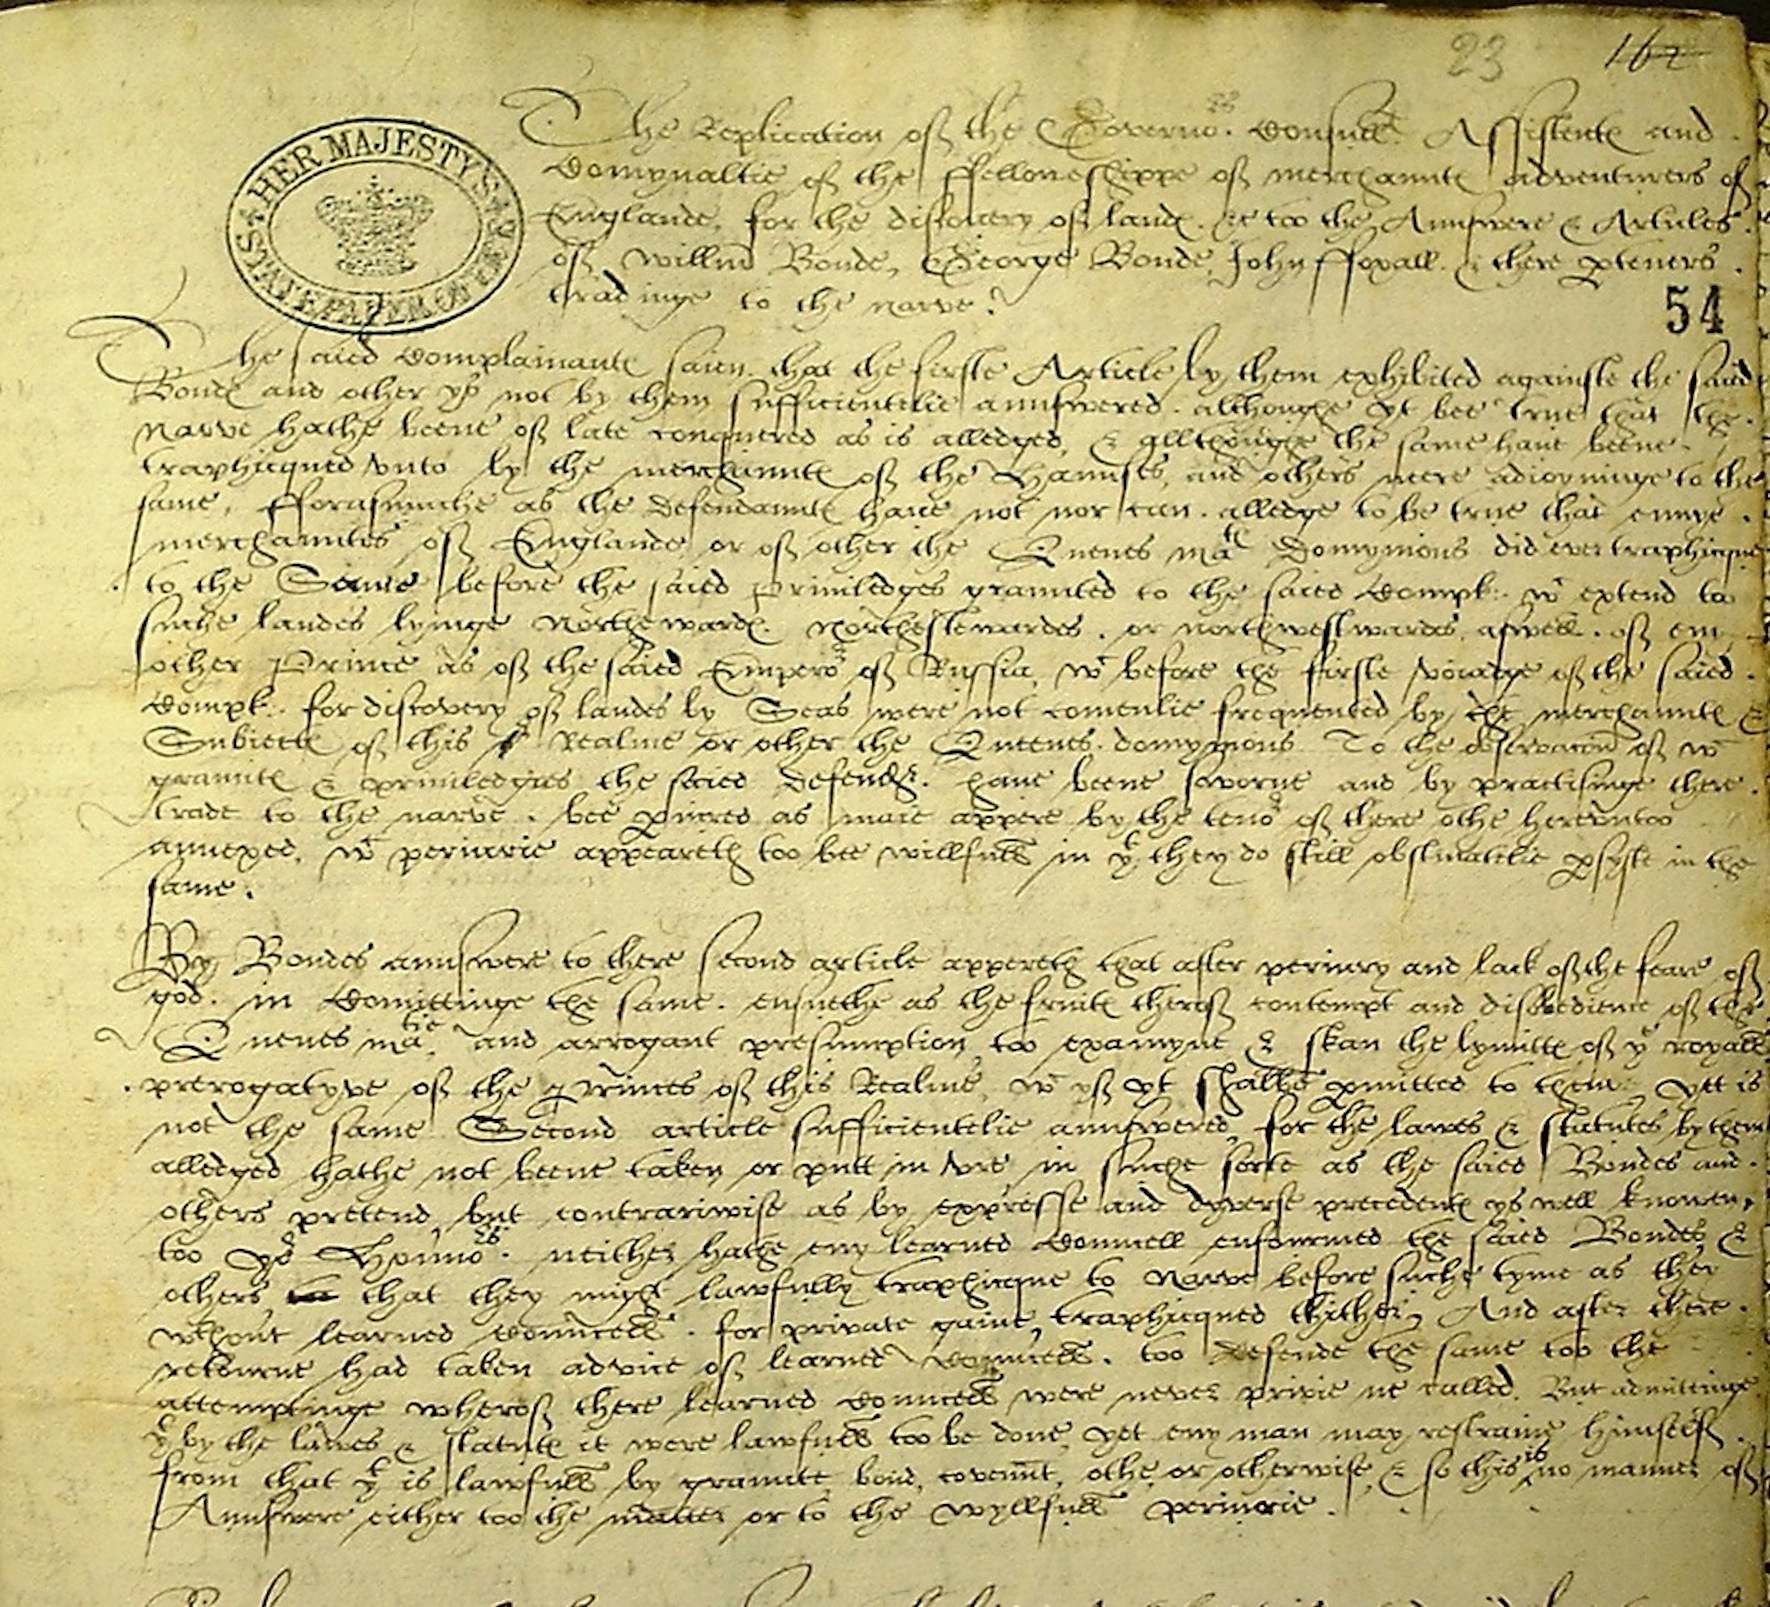 23 162
The Replication of the Governors. Consulles Assistentes and
Comynaltie of the ffelloweshippe of merchauntes adventurers of
Englande, for the discovery of landes. &c too the Aunswere & Articles
of Willm Bonde, George Bonde, John ffoxall. & there pteners.
tradinge to the narve.
HER MAJESTY'S STATE PAPER OFFICE
54
The saied Complainantes saien that the firste Article by them exhibited againste the said
Bondes and other ys not by them sufficientelie aunswered. althoughe yt bee true that the
Narve hathe beene of late conquered as is alledged, & allthoughe the same have beene
traphicqued unto by the merchauntes of the Haunses, and others nere adioyninge to the
same, fforasmuche as the defendauntes have not nor can alledge to be true that ennye
merchauntes of Englande or of other the Quenes matie Domynions did ever traphicque
to the Same before the saied Priviledges graunted to the saied Complts. wch extend to
suche landes lyinge Northewardes. Northestewardes. or northwestwardes, aswell of eny
other Prince as of the saied Emperor of Russia, wch before the firste voiadge of the saied
Complts. for discovery of landes by Seas were not comenlie frequented by the merchauntes &
Subiectes of this Realme or other the Queenes domynions To the observacion of wch
grauntes & priviledges the saied defendtes. have beene sworne and by practisinge there
trade to the narve. bee piured as maie appere by the tenor of there othe hereunto
annexed, wch periurie appeareth too bee willfull in yt they do still obstinatelie psyste in the
same.
By Bondes aunswere to there second article appereth that after periury and lack of the feare of
god. in Comittinge the same. ensuethe as the fruites therof contempt and disobedience of the
Quenes matie. and arrogant presumption too examyne & skan the lymittes of ye royall
prerogatyve of the princes of this Realme, wch yf yt shalbe pmitted to them yett is
not the same Second article sufficientelie aunswered, for the lawes & statutes by them
alledged hathe not beene taken or putt in ure in suche sorte as the saied Bondes and
others pretend, but contrariwise as by expresse and dyverse precedentes ys well knowen,
too yor Honnors. neither hathe eny learned Councell enfourmed the saied Bondes &
others that they might lawfully traphicque to Narve before suche tyme as they
wthout learned councell. for private gaine, traphicqued thither, And after there
retourne had taken advice of learned Councell. too defende the same too the
attemptinge wherof there learned councell were never privie ne called. But admittinge
yt by the lawes & statutes it were lawfull too be done, yet eny man may restraine himself
from that yt is lawfull by graunte, bond, covennt, othe or otherwise, & so this is no manner of
Aunswere either too the matter or to the wyllfull periurie.